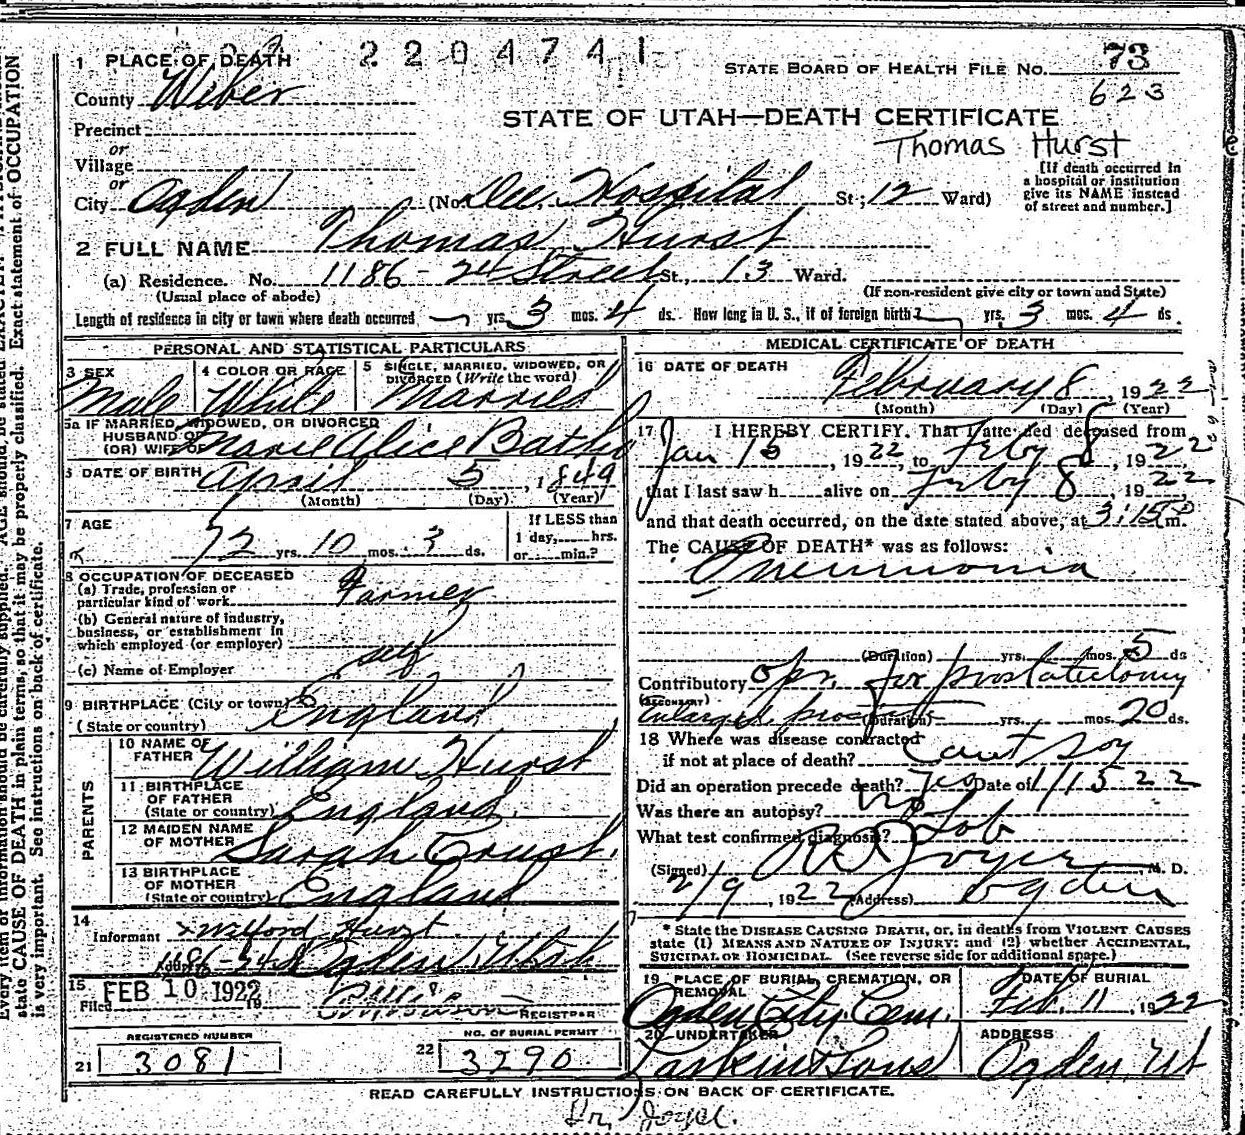 2204741
1 PLACE OF DEATH
STATE BOARD OF HEALTH FILE NO. 73
623
County Weber
STATE OF UTAH—DEATH CERTIFICATE
Thomas Hurst
Precinct
or
Village
or
City Ogden (No. Dee Hospital St; 12 Ward)
[If death occurred in
a hospital or institution
give its NAME instead
of street and number.]
2 FULL NAME Thomas Hurst
(a) Residence. No. 1186 - 24 Street St., 13 Ward.
(Usual place of abode) (If non-resident give city or town and State)
Length of residence in city or town where death occurred yrs. 3 mos. 4 ds. How long in U. S., if of foreign birth? yrs. 3 mos. 4 ds.
PERSONAL AND STATISTICAL PARTICULARS
3 SEX Male
4 COLOR OR RACE White
5 SINGLE, MARRIED, WIDOWED, OR
DIVORCED (Write the word)
Married
5a IF MARRIED, WIDOWED, OR DIVORCED
HUSBAND OF
(OR) WIFE OF Marie Alice
6 DATE OF BIRTH April 5, 1849
(Month) (Day) (Year)
7 AGE
72 yrs. 10 mos. 3 ds.
If LESS than
1 day, hrs.
or min.?
8 OCCUPATION OF DECEASED
(a) Trade, profession or
particular kind of work Farmer
(b) General nature of industry,
business, or establishment in
which employed (or employer)
(c) Name of Employer self
9 BIRTHPLACE (City or town)
(State or country) England
PARENTS
10 NAME OF
FATHER William Hurst
11 BIRTHPLACE
OF FATHER
(State or country) England
12 MAIDEN NAME
OF MOTHER Sarah
13 BIRTHPLACE
OF MOTHER
(State or country) England
14
Informant x Wilford Hurst
Address 1186-24 St Ogden Utah
15
Filed FEB 10 1922 19
REGISTRAR
REGISTERED NUMBER
21 3081
NO. OF BURIAL PERMIT
22 3290
MEDICAL CERTIFICATE OF DEATH
16 DATE OF DEATH February 8, 1922
(Month) (Day) (Year)
17 I HEREBY CERTIFY. That I attended deceased from
Jan 15, 1922, to Feby 8, 1922
that I last saw h alive on Feby 8, 1922
and that death occurred, on the date stated above, at 3:15 P m.
The CAUSE OF DEATH* was as follows:
Pneumonia
(Duration) yrs. mos. 5 ds
Contributory opr. for prostatectomy
(SECONDARY)
Enlarged prostate (Duration) yrs. mos. 20 ds.
18 Where was disease contracted
if not at place of death? Cant say
Did an operation precede death? Yes Date of 1/15 22
Was there an autopsy? No
What test confirmed diagnosis? Lob
(Signed) Joyce, M. D.
2/9, 1922 (Address) Ogden
* State the DISEASE CAUSING DEATH, or, in deaths from VIOLENT CAUSES
state (1) MEANS AND NATURE OF INJURY: and (2) whether ACCIDENTAL,
SUICIDAL OR HOMICIDAL. (See reverse side for additional space.)
19 PLACE OF BURIAL, CREMATION, OR
REMOVAL
Ogden City Cem.
DATE OF BURIAL
Feb. 11, 1922
20 UNDERTAKER
Larkin & Sons
ADDRESS
Ogden, Ut
READ CAREFULLY INSTRUCTIONS ON BACK OF CERTIFICATE.
Dr. Joyce.
state CAUSE OF DEATH in plain terms, so that it may be properly classified. Exact statement of OCCUPATION
is very important. See instructions on back of certificate.